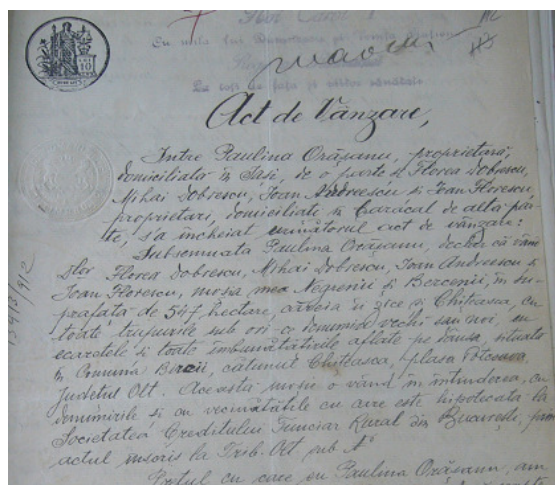 Cu mila lui Dumnezeu și voința
La toți de față și viitori sănătate
Act de Vânzare,
Intre Paulina Orășanu, proprietară,
domiciliată în Iasi, de o parte si Florea Dobrescu,
Mihai Dobrescu, Ioan Andreescu si Ioan Florescu,
proprietari, domiciliati în Caracal de alta par-
te, s'a încheiat următorul act de vânzare:
Subsemnata Paulina Orășanu, declar că vând
Dlor Florea Dobrescu, Mihai Dobrescu, Ioan Andreescu și
Ioan Florescu, moșia mea Negrenii și Bercenii, în su-
prafață de 547 hectare, căreia îi zice și Chiteasca, cu
toate trupurile sub ori-ce denumire vechi sau noi, cu
ecaretele si toate îmbunătățirile aflate pe dânsa, situată
în Comuna cătunul Chiteasca, plasa
Județul Olt. Această moșie o vând în întinderea, cu
denumirile si cu vecinătățile cu care este hipotecată la
Societatea Creditului Funciar Rural din București, prin
actul inscris la Trib. Olt sub No
Prețul cu care eu Paulina Orășanu, am